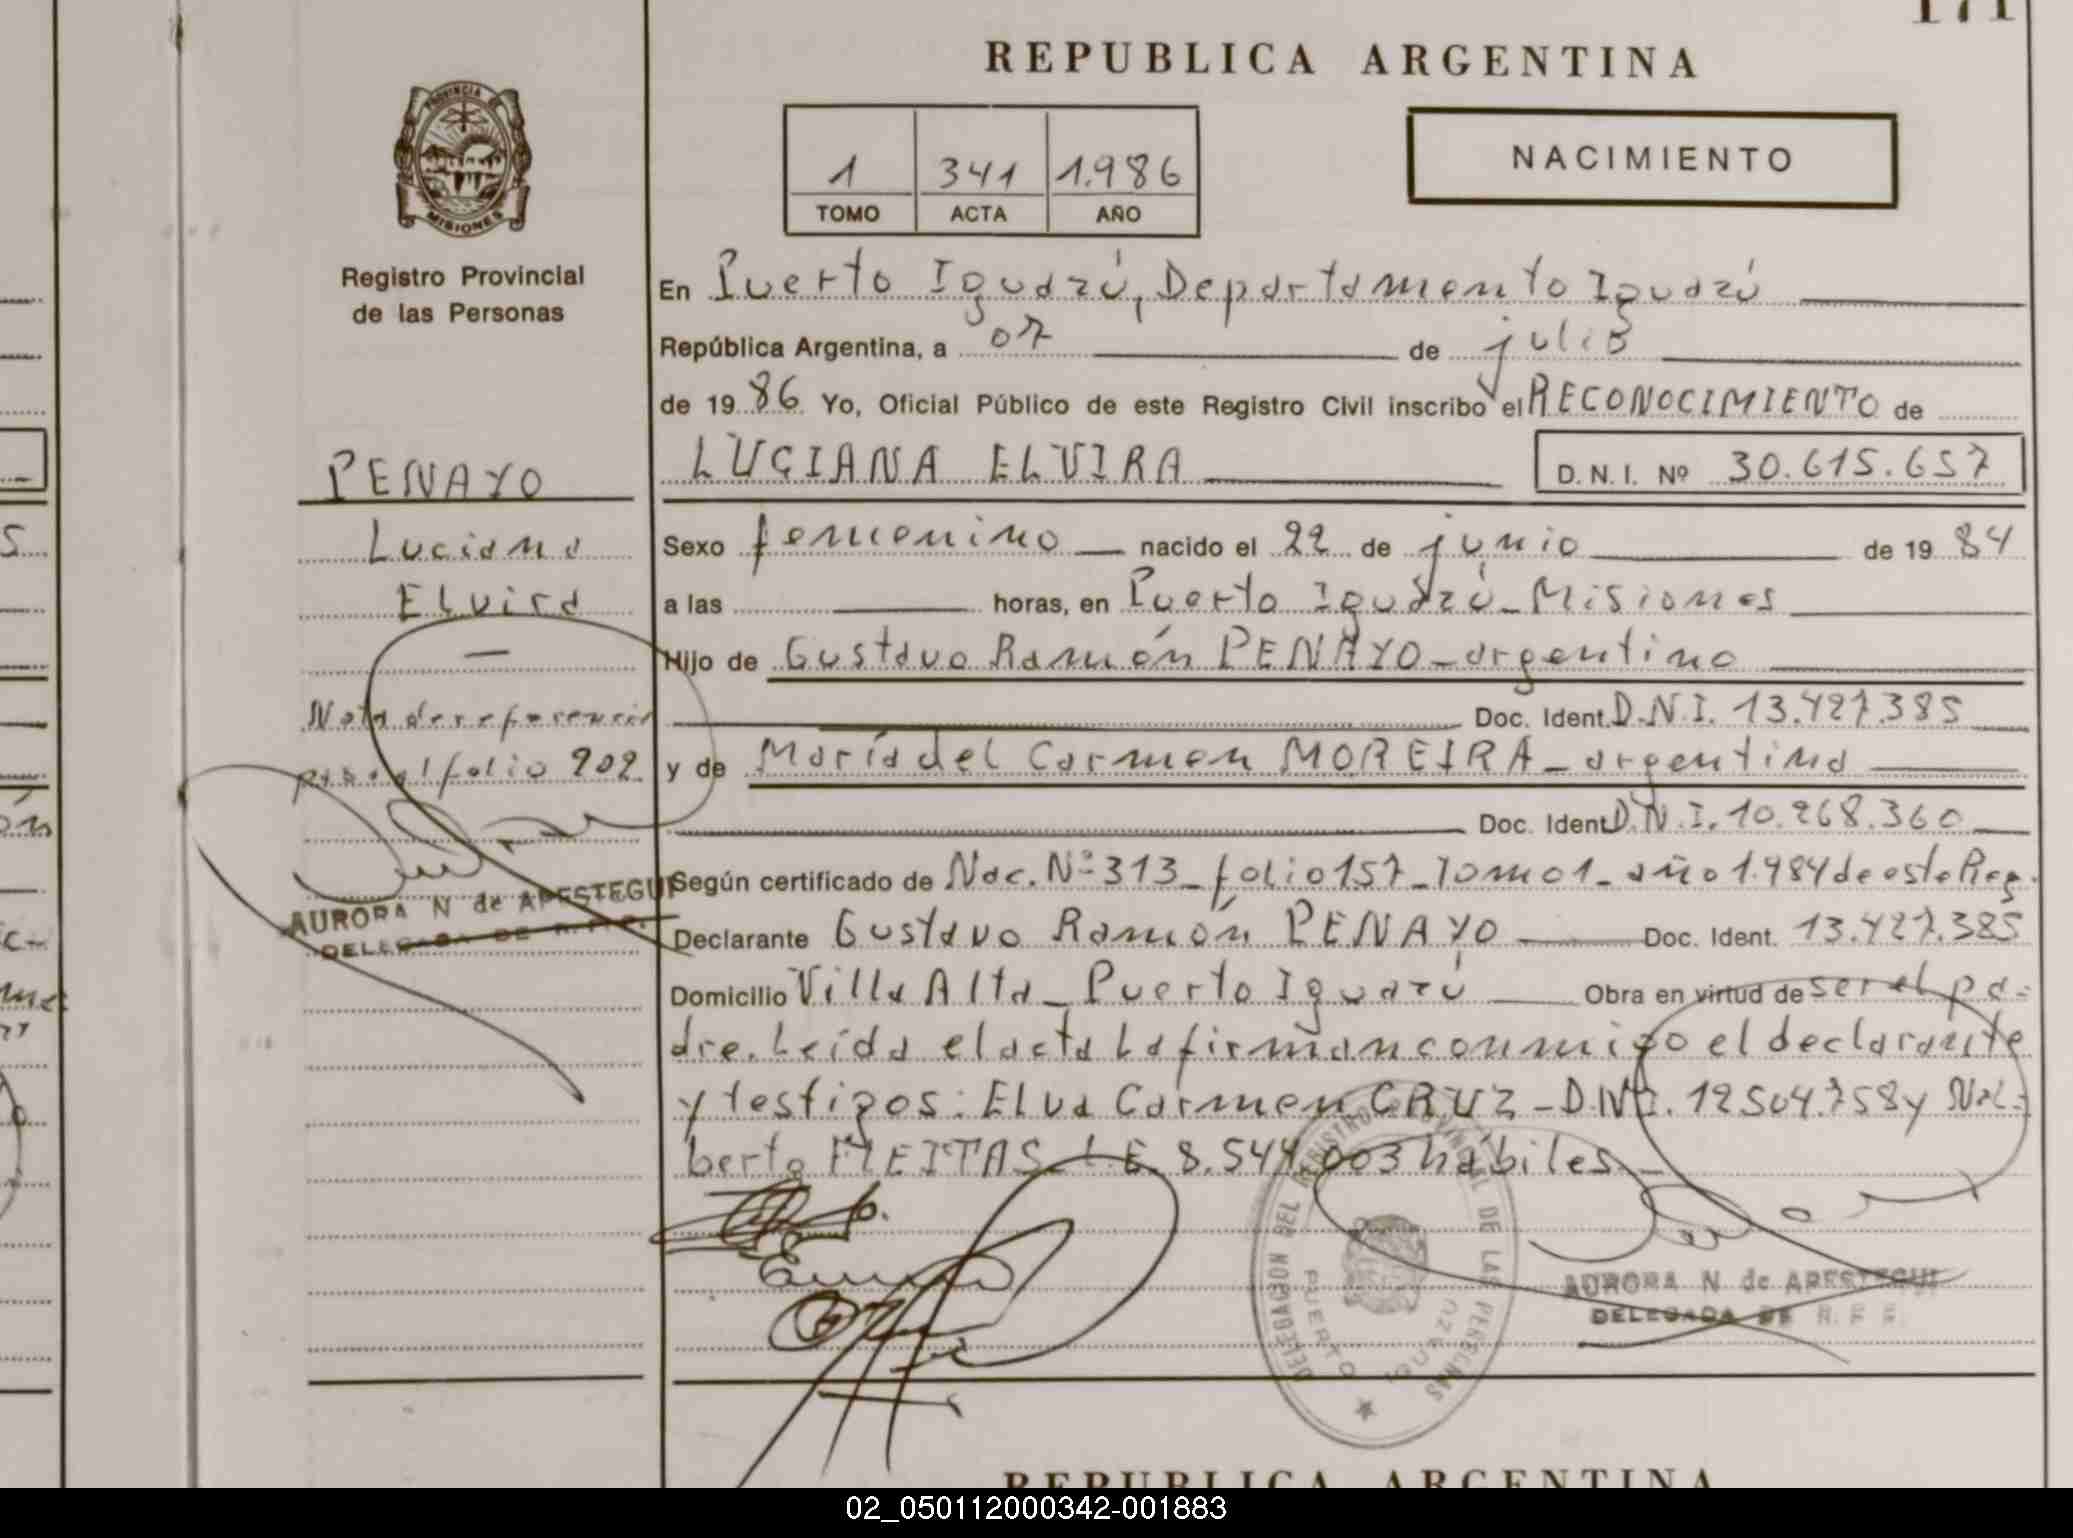 171
REPUBLICA ARGENTINA
PROVINCIA DE
MISIONES
Registro Provincial
de las Personas
1 341 1.986
TOMO ACTA AÑO
NACIMIENTO
En Puerto Iguazú, Departamento Iguazú
República Argentina, a 07 de julio
de 1986 Yo, Oficial Público de este Registro Civil inscribo el RECONOCIMIENTO de
LUCIANA ELVIRA D.N.I. Nº 30.615.657
PENAYO
Luciana
Elvira
Nota de referencia
pasa al folio 202
AURORA N de APESTEGUI
DELEGADA DE R.P.P.
Sexo femenino nacido el 22 de junio de 1984
a las horas, en Puerto Iguazú - Misiones
Hijo de Gustavo Ramón PENAYO - argentino
Doc. Ident. D.N.I. 13.427.385
y de María del Carmen MOREIRA - argentina
Doc. Ident. D.N.I. 10.268.360
Según certificado de Nac. Nº 313 - folio 157 - Tomo 1 - año 1.984 de este Reg.
Declarante Gustavo Ramón PENAYO Doc. Ident. 13.427.385
Domicilio Villa Alta - Puerto Iguazú Obra en virtud de ser el pa-
dre. Leída el acta la firman conmigo el declarante
y testigos: Elva Carmen CRUZ - D.N.I. 12.504.758 y
berto FLEITAS L.E. 8.544.003 hábiles. -
DELEGACION DEL REGISTRO PROVINCIAL DE LAS PERSONAS
PUERTO IGUAZU
AURORA N de APESTEGUI
DELEGADA DE R. P. P.
REPUBLICA ARGENTINA
02_050112000342-001883